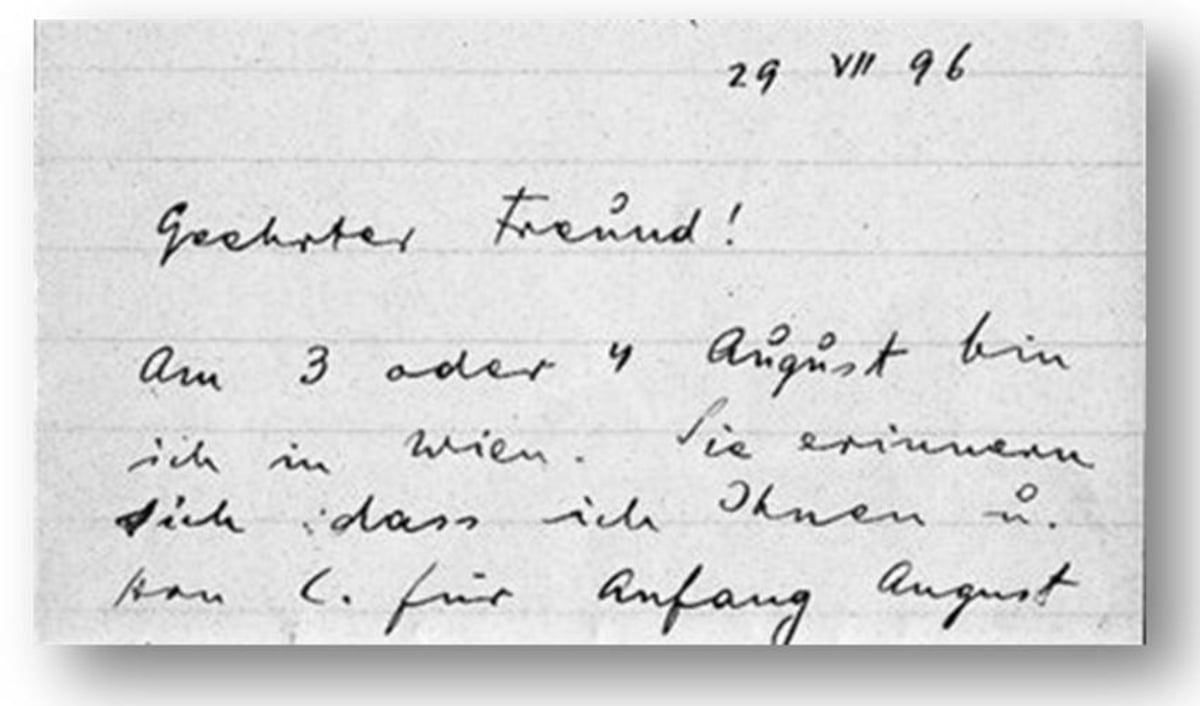 29 VII 96
Geehrter Freund!
Am 3 oder 4 August bin
ich in Wien. Sie erinnern
sich dass ich Ihnen u.
C. für Anfang August